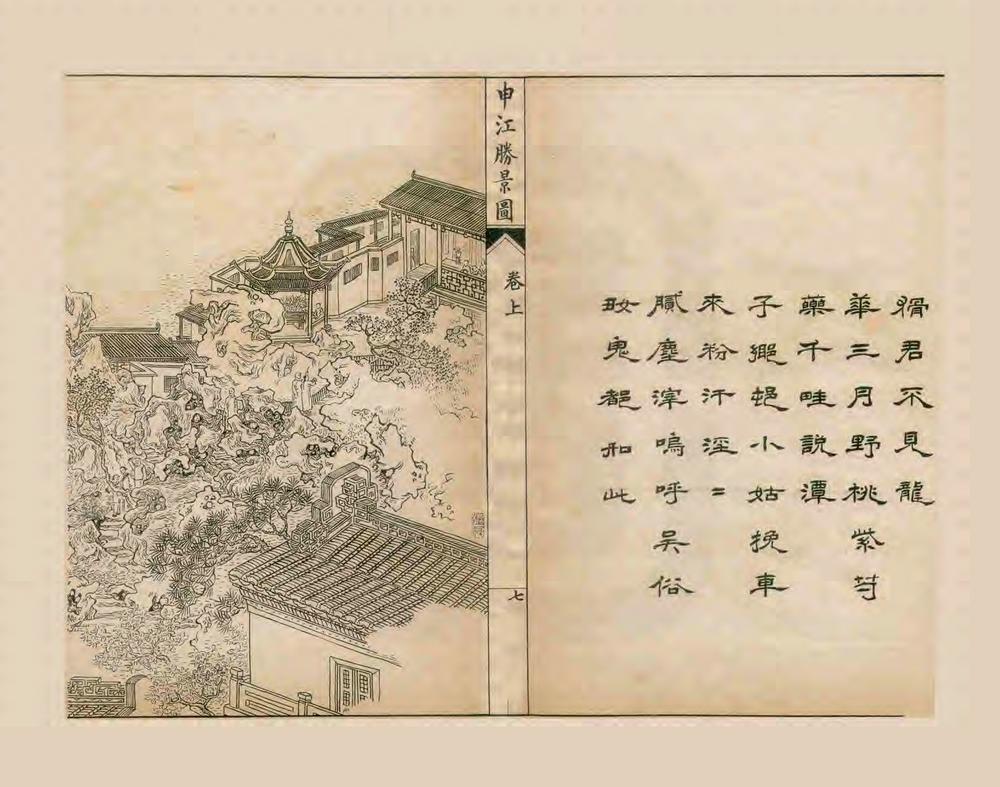 申江勝景圖
卷上
七
猾君不見龍
華三月野桃紫芍
藥千畦說潭
子小姑挽車
來粉汗淫=
膩塵滓嗚呼吳俗
鬼都如此